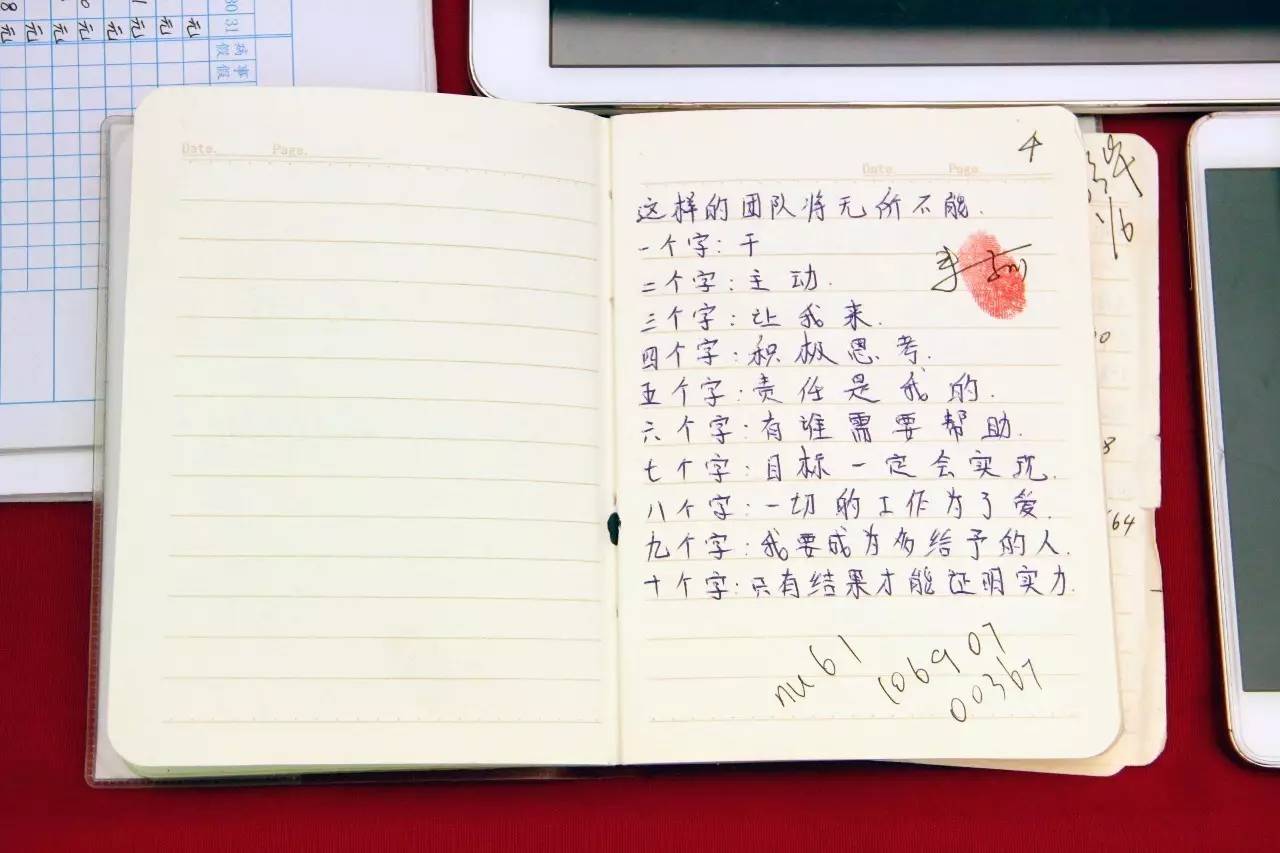 30 31
病事
假假
元
元
元
元
元
1元
0元
8元
Date. Page.
Date Page
4
这样的团队将无所不能.
一个字:干
二个字:主动.
三个字:让我来.
四个字:积极思考.
五个字:责任是我的.
六个字:有谁需要帮助.
七个字:目标一定会实现.
八个字:一切的工作为了爱.
九个字:我要成为多给予的人.
十个字:只有结果才能证明实力.
nu61
106907
00367
8
64